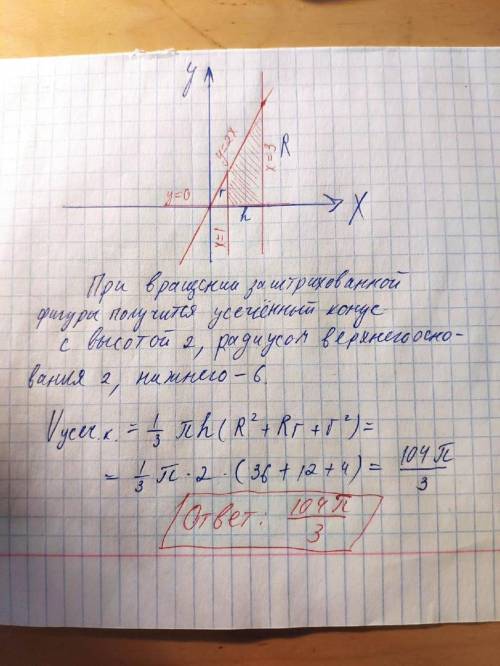 y
y=2x
x=3
R
y=0
r
h
X
x=1
При вращении заштрихованной
фигуры получится усечённый конус
с высотой 2, радиусом верхнего осно-
вания 2, нижнего – 6.
Vусеч.к. = 1/3 πh(R² + Rr + r²) =
= 1/3 π · 2 · (36 + 12 + 4) = 104π/3
Ответ: 104π/3